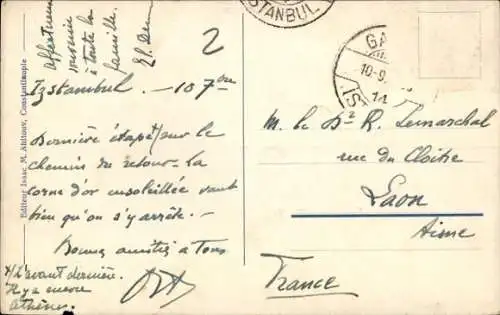 affectueux
souvenir
à toute la
famille.
2
ISTANBUL
GA
10-9.
14
Editeur Isaac M. Ahitouv, Constantinople
Istambul. - 10 7bre
Dernière étape/sur le
chemin du retour - La
corne d'or ensoleillée vaut
bien qu'on s'y arrête. -
Bonnes amitiés à Tous
x/ L'avant dernière.
Il y a encore
Athènes.
M. le Dr R. Lemarchal
rue du Cloître
Laon
Aisne
France